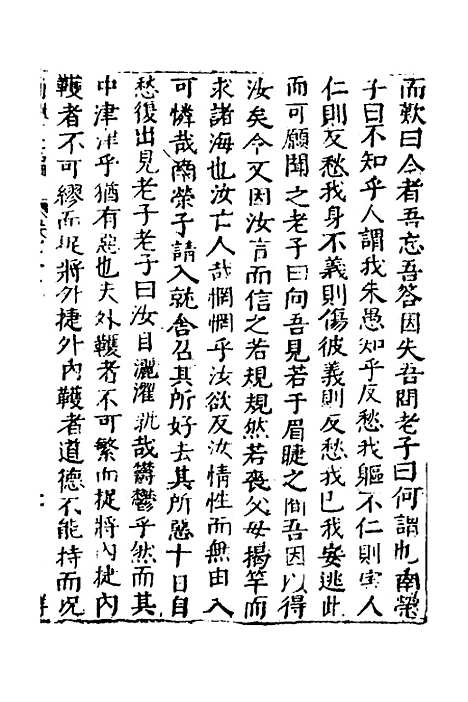 而歎曰今者吾忘吾答因失吾問老子曰何謂也南榮
子曰不知乎人謂我朱愚知乎反愁我軀不仁則害人
仁則反愁我身不義則傷彼義則反愁我已我安逃此
而可願聞之老子曰向吾見若于眉睫之間吾因以得
汝矣今又因汝言而信之若規規然若喪父母揭竿而
求諸海也汝亡人哉惘惘乎汝欲反汝情性而無由入
可憐哉南榮子請入就舍召其所好去其所惡十日自
愁復出見老子老子曰汝自灑濯孰哉鬱鬱乎然而其
中津津乎猶有惡也夫外韄者不可繁而捉將內揵內
韄者不可繆而捉將外揵外內韄者道德不能持而況